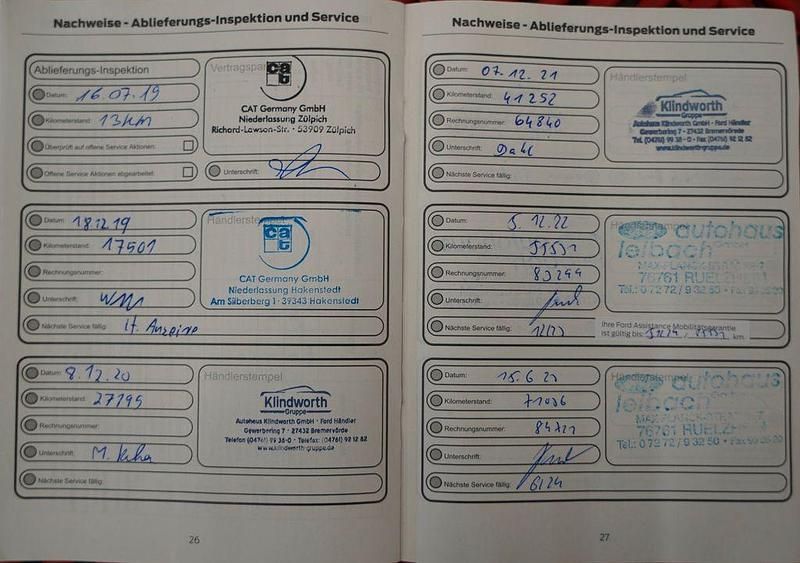 Nachweise - Ablieferungs-Inspektion und Service
Ablieferungs-Inspektion
Datum: 16.07.19
Kilometerstand: 13km
Überprüft auf offene Service Aktionen:
Offene Service Aktionen abgearbeitet:
CAT Germany GmbH
Niederlassung Zülpich
Richard-Lawson-Str. · 53909 Zülpich
Unterschrift:
Datum: 18.12.19
Kilometerstand: 17501
Rechnungsnummer:
Unterschrift:
Nächste Service fällig: lt. Anzeige
Händlerstempel
cat
CAT Germany GmbH
Niederlassung Hakenstedt
Am Silberberg 1 · 39343 Hakenstedt
Datum: 8.12.20
Kilometerstand: 27195
Rechnungsnummer:
Unterschrift:
Nächste Service fällig:
Händlerstempel
Klindworth
Gruppe
Autohaus Klindworth GmbH · Ford Händler
Gewerbering 7 · 27432 Bremervörde
Telefon (04761) 99 38-0 · Telefax: (04761) 92 12 82
www.klindworth-gruppe.de
26
Nachweise - Ablieferungs-Inspektion und Service
Datum: 07.12.21
Kilometerstand: 41252
Rechnungsnummer: 64840
Unterschrift: Dahl
Nächste Service fällig:
Händlerstempel
Klindworth
Gruppe
Autohaus Klindworth GmbH · Ford Händler
Gewerbering 7 · 27432 Bremervörde
Tel. (04761) 99 38-0 · Fax (04761) 92 12 82
www.klindworth-gruppe.de
Datum: 5.12.22
Kilometerstand:
Rechnungsnummer: 83244
Unterschrift:
Nächste Service fällig: 12/23
autohaus
leibach
76761
Tel.: 0 72 72 / 9 32 50
Ihre Ford Assistance Mobilitätsgarantie
ist gültig bis: km
Datum: 15.6.23
Kilometerstand: 71036
Rechnungsnummer: 84721
Unterschrift:
Nächste Service fällig: 6/24
autohaus
leibach
76761 RUELZHEIM
Tel.: 0 72 72 / 9 32 50
27